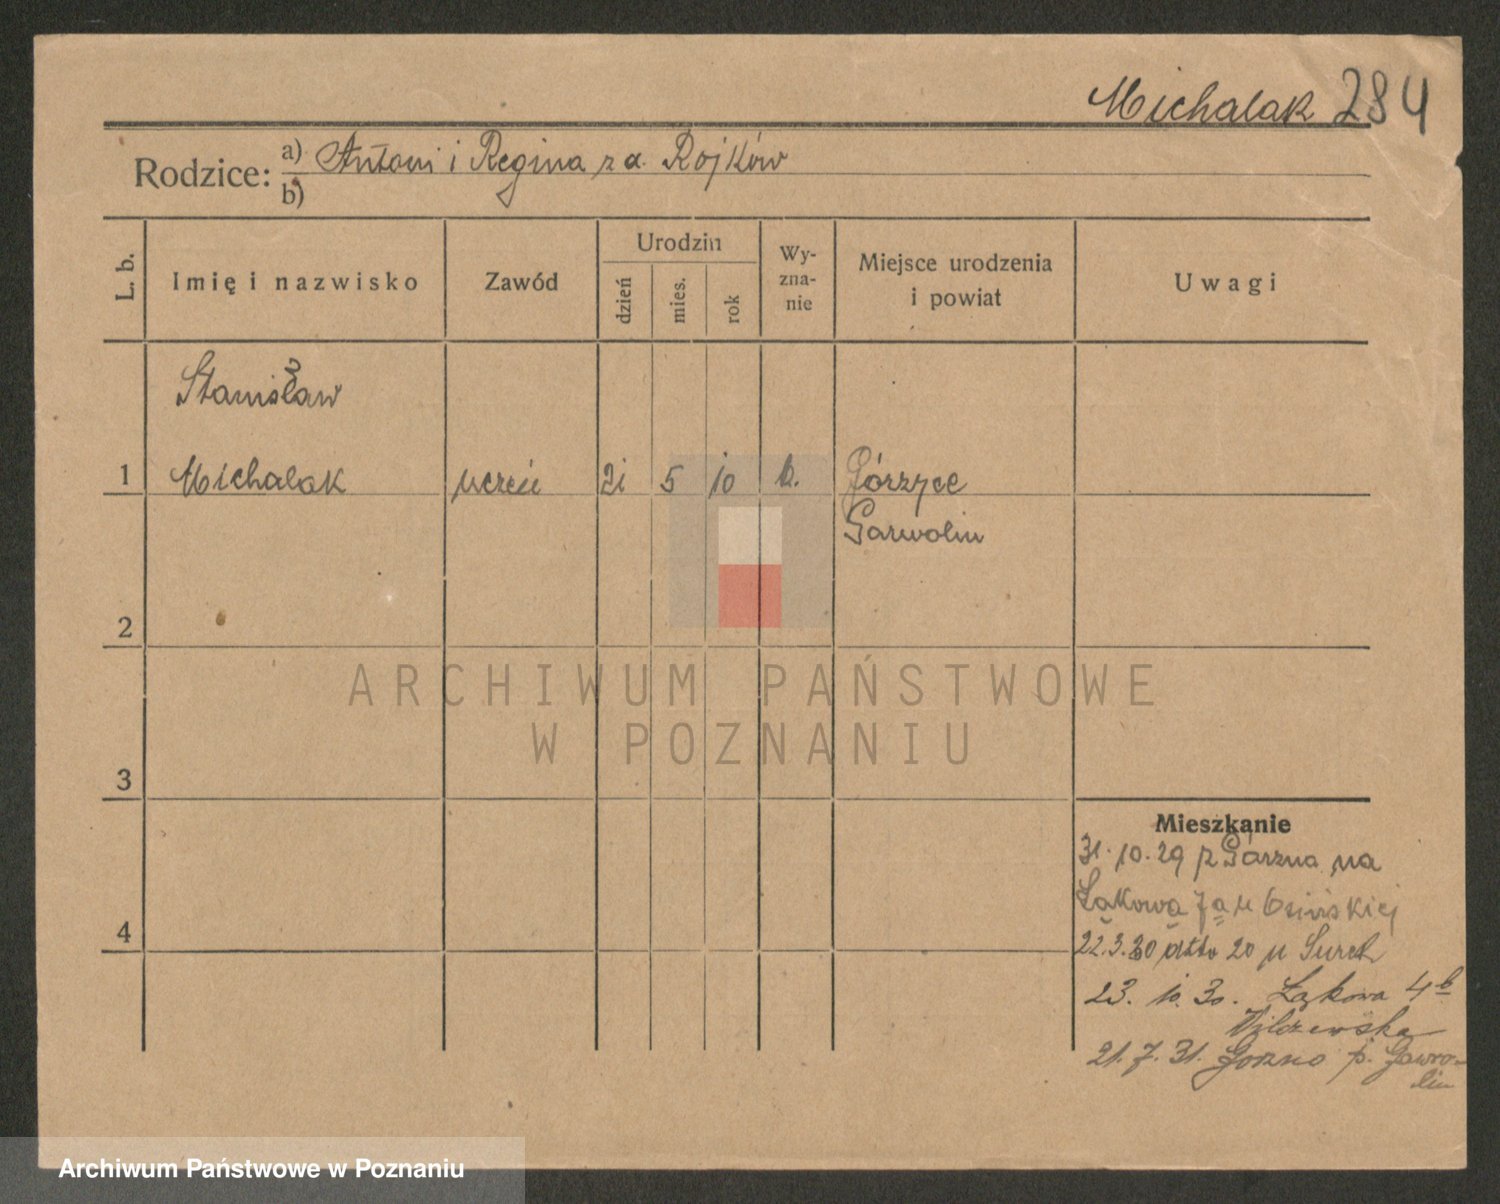 Michalak 284
Rodzice: a) Antoni i Regina z d. Rojków
b)
L. b.
Imię i nazwisko
Zawód
Urodzin
dzień
mies.
rok
Wy-
zna-
nie
Miejsce urodzenia
i powiat
Uwagi
Stanisław
1 Michalak uczeń 21 5 10 k. Górzyce
Garwolin
2
3
4
Mieszkanie
31.10.29 z Górzna na
Łąkowa 7a u Osińskiej
22.3.30 dtto 20 u
23. 10. 30. Łąkowa 4b
Wilczewska
21. 7. 31. Gorzno p. Gawro-
lin
ARCHIWUM PAŃSTWOWE
W POZNANIU
Archiwum Państwowe w Poznaniu